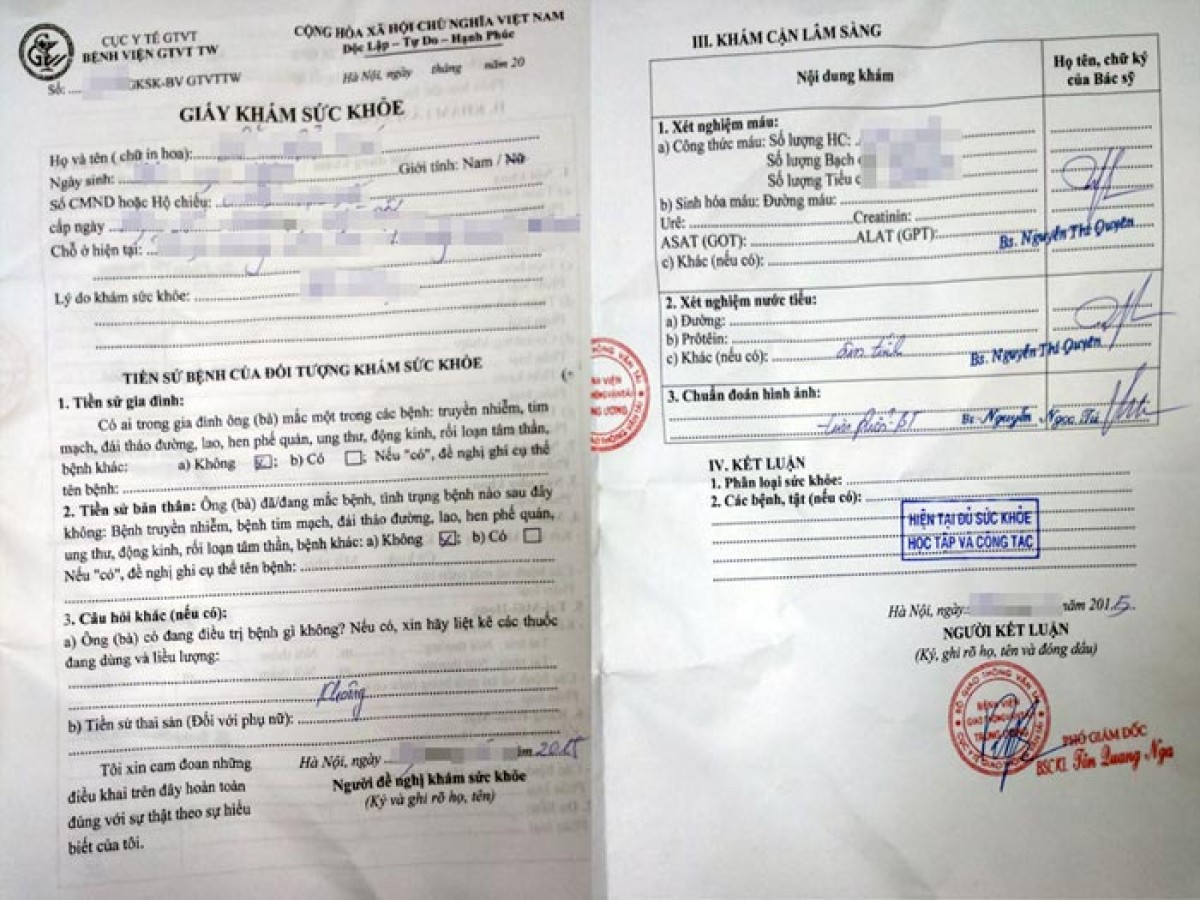 CỤC Y TẾ GTVT
BỆNH VIỆN GTVT TW
Số: GKSK-BV GTVTTW
CỘNG HÒA XÃ HỘI CHỦ NGHĨA VIỆT NAM
Độc Lập – Tự Do – Hạnh Phúc
Hà Nội, ngày tháng năm 20
GIẤY KHÁM SỨC KHỎE
Họ và tên ( chữ in hoa):
Ngày sinh: Giới tính: Nam / Nữ
Số CMND hoặc Hộ chiếu:
cấp ngày
Chỗ ở hiện tại:
Lý do khám sức khỏe:
TIỀN SỬ BỆNH CỦA ĐỐI TƯỢNG KHÁM SỨC KHỎE
1. Tiền sử gia đình:
Có ai trong gia đình ông (bà) mắc một trong các bệnh: truyền nhiễm, tim
mạch, đái tháo đường, lao, hen phế quản, ung thư, động kinh, rối loạn tâm thần,
bệnh khác: a) Không ☑; b) Có ☐; Nếu "có", đề nghị ghi cụ thể
tên bệnh:
2. Tiền sử bản thân: Ông (bà) đã/đang mắc bệnh, tình trạng bệnh nào sau đây
không: Bệnh truyền nhiễm, bệnh tim mạch, đái tháo đường, lao, hen phế quản,
ung thư, động kinh, rối loạn tâm thần, bệnh khác: a) Không ☑; b) Có ☐
Nếu "có", đề nghị ghi cụ thể tên bệnh:
3. Câu hỏi khác (nếu có):
a) Ông (bà) có đang điều trị bệnh gì không? Nếu có, xin hãy liệt kê các thuốc
đang dùng và liều lượng:
Không
b) Tiền sử thai sản (Đối với phụ nữ):
Tôi xin cam đoan những
điều khai trên đây hoàn toàn
đúng với sự thật theo sự hiểu
biết của tôi.
Hà Nội, ngày 2015
Người đề nghị khám sức khỏe
(Ký và ghi rõ họ, tên)
III. KHÁM CẬN LÂM SÀNG
Nội dung khám
Họ tên, chữ ký
của Bác sỹ
1. Xét nghiệm máu:
a) Công thức máu: Số lượng HC:
Số lượng Bạch
Số lượng Tiểu
b) Sinh hóa máu: Đường máu:
Urê: Creatinin:
ASAT (GOT): ALAT (GPT):
Bs. Nguyễn Thị Quyên
c) Khác (nếu có):
2. Xét nghiệm nước tiểu:
a) Đường:
b) Prôtêin:
c) Khác (nếu có): âm tính
Bs. Nguyễn Thị Quyên
3. Chuẩn đoán hình ảnh:
BT
Bs. Nguyễn Ngọc
IV. KẾT LUẬN
1. Phân loại sức khỏe:
2. Các bệnh, tật (nếu có):
HIỆN TẠI ĐỦ SỨC KHỎE
HỌC TẬP VÀ CÔNG TÁC
Hà Nội, ngày: năm 2015.
NGƯỜI KẾT LUẬN
(Ký, ghi rõ họ, tên và đóng dấu)
BỘ GIAO THÔNG VẬN TẢI
BỆNH VIỆN
GIAO THÔNG VẬN TẢI
TRUNG ƯƠNG
PHÓ GIÁM ĐỐC
BSCKI. Tôn Quang Nga